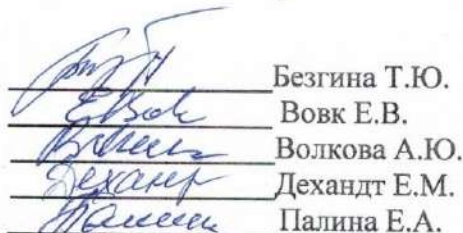 Безгина Т.Ю.
Вовк Е.В.
Волкова А.Ю.
Дехандт Е.М.
Палина Е.А.